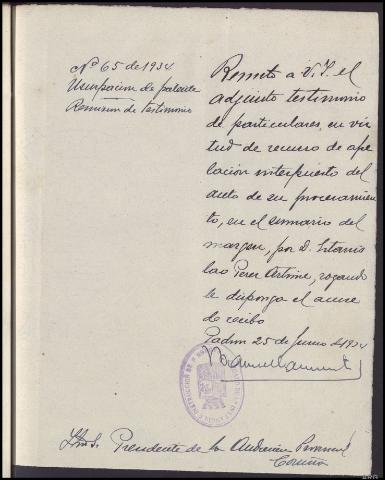 Nº 65 de 1934
Usurpación de patente
Remisión de testimonio
Remito a V.I. el
adjunto testimonio
de particulares, en vir
tud de recurso de ape
lación interpuesto del
auto de su procesamien
to, en el sumario del
margen, por D. Estanis
lao Perez Artime, rogando
le disponga el acuse
de recibo
Padrón 25 de Junio de 1934
Iltmo. Sr. Presidente de la Audiencia Provincial
Coruña